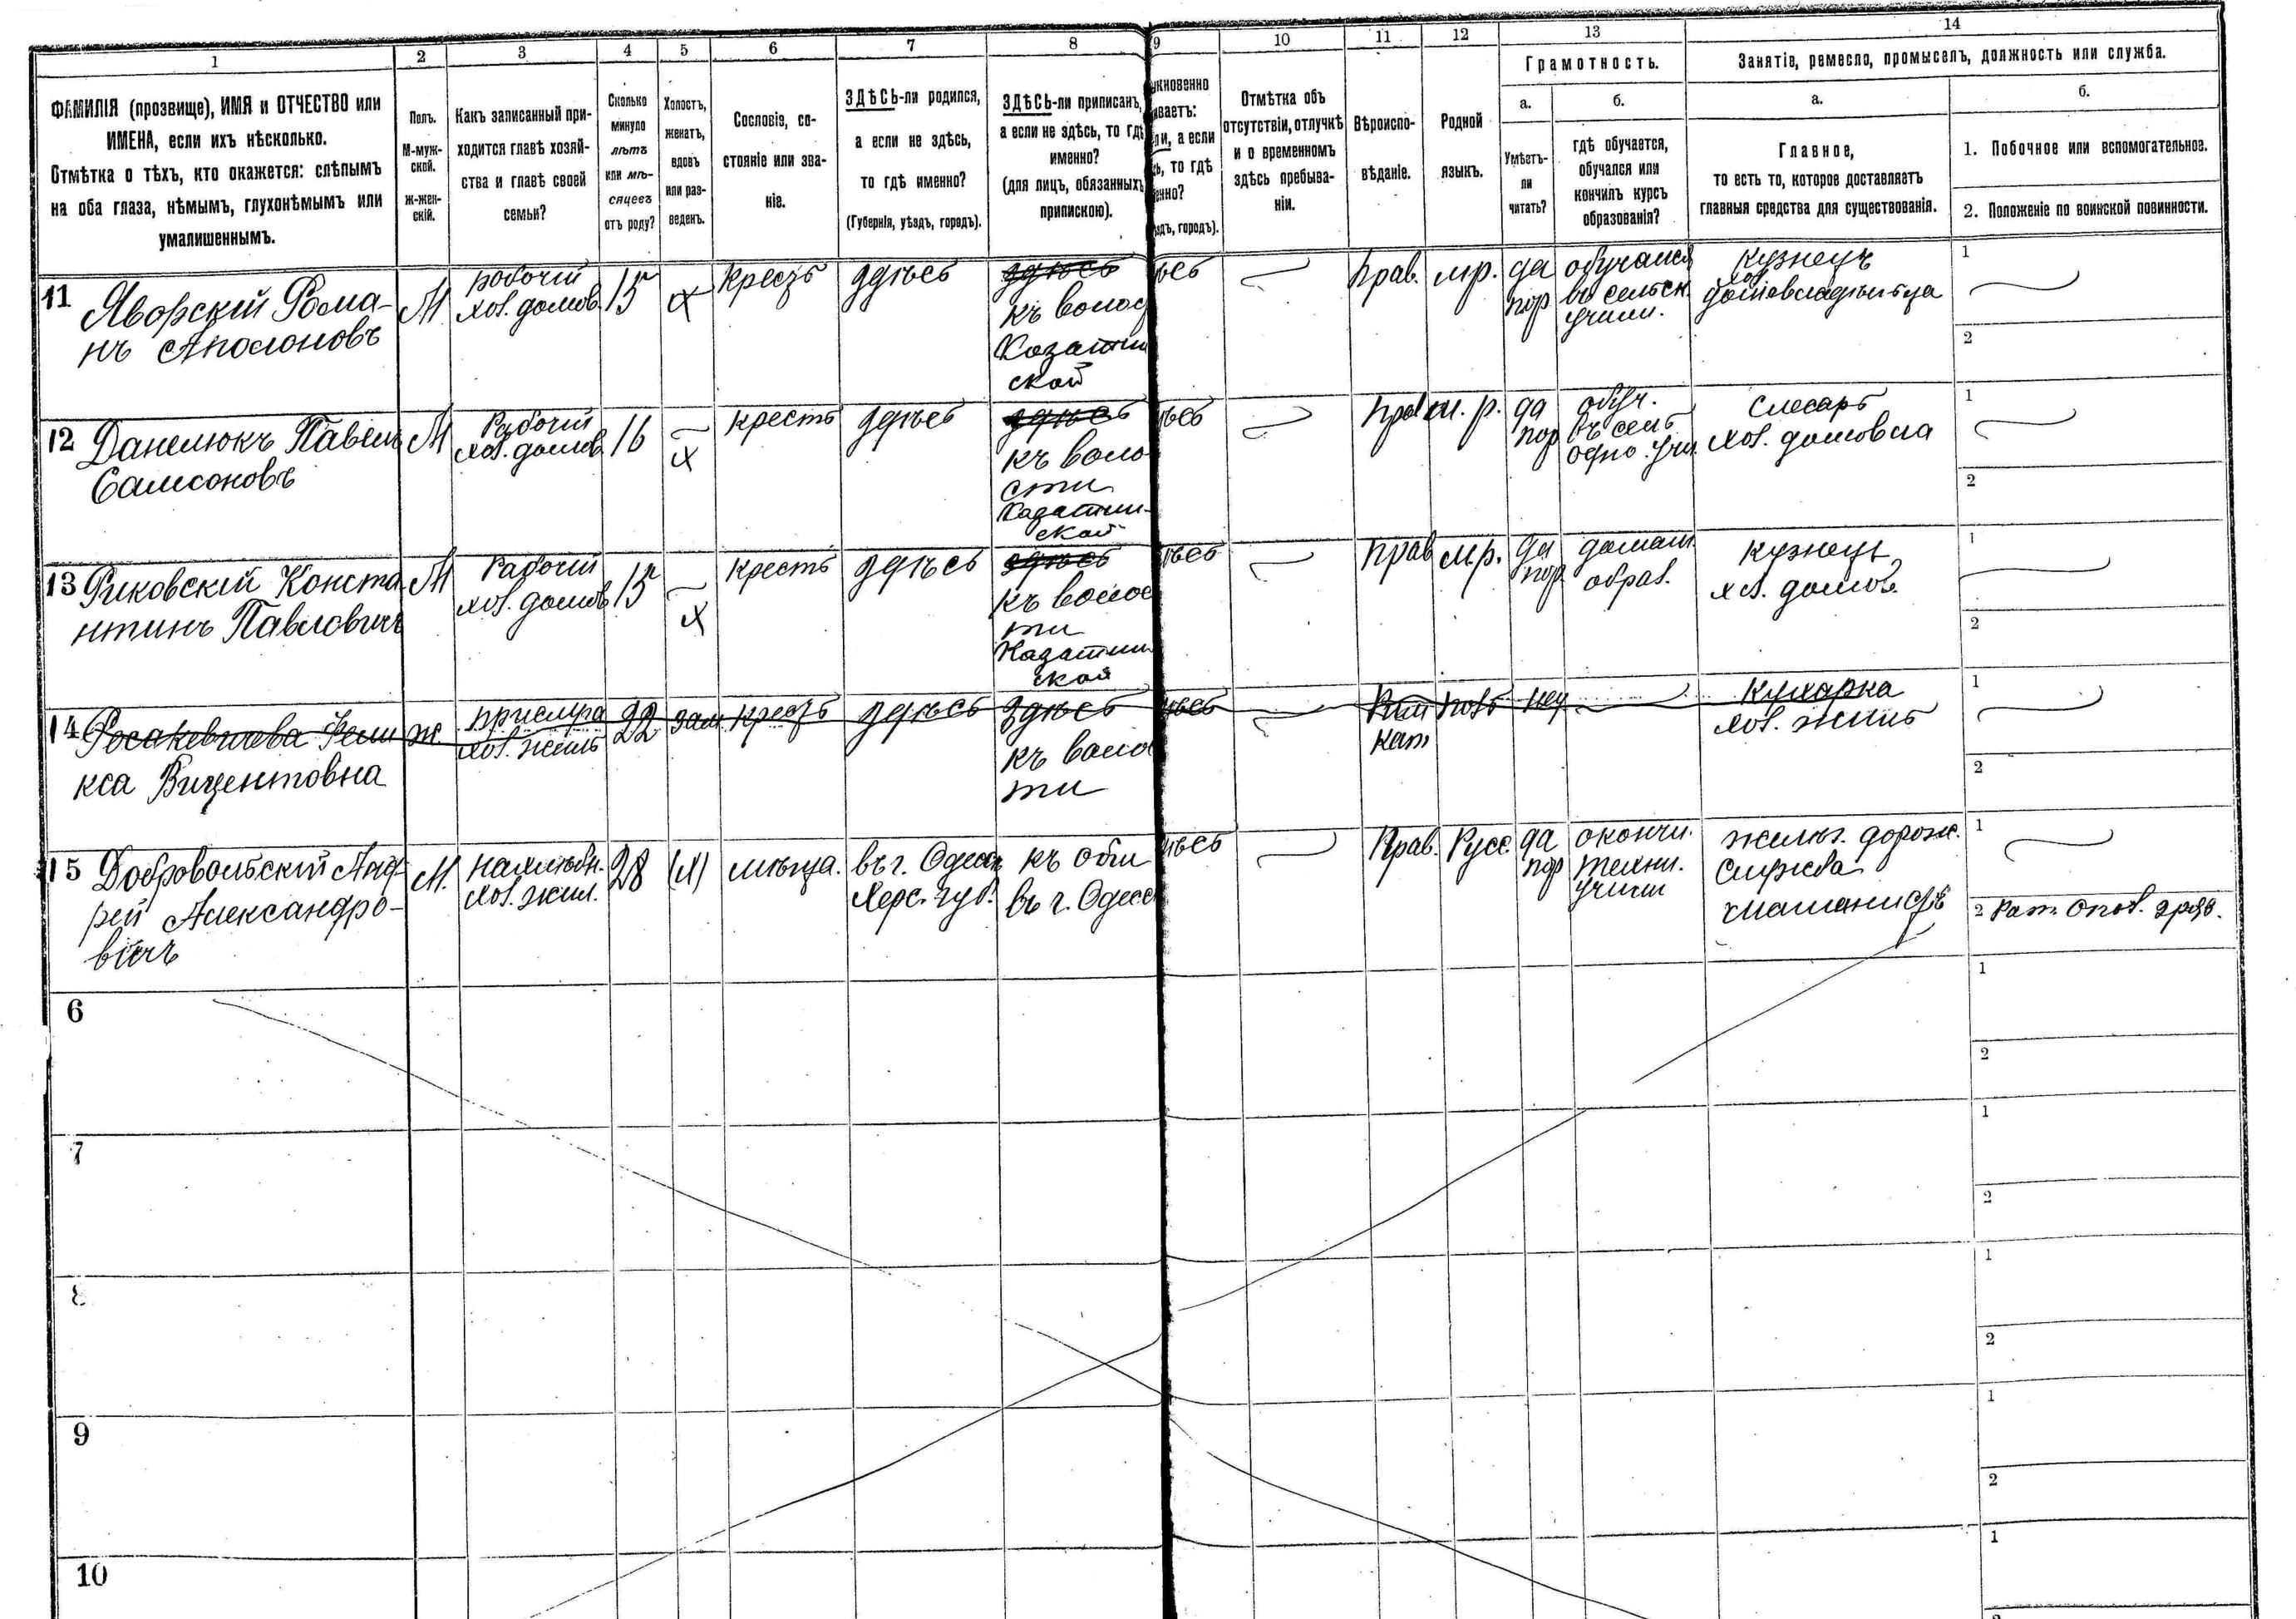 1
2
3
4
5
6
7
8
9
10
11
12
13
14
ФАМИЛІЯ (прозвище), ИМЯ и ОТЧЕСТВО или
ИМЕНА, если ихъ нѣсколько.
Отмѣтка о тѣхъ, кто окажется: слѣпымъ
на оба глаза, нѣмымъ, глухонѣмымъ или
умалишеннымъ.
Полъ.
М-муж-
ской.
ж-жен-
скій.
Какъ записанный при-
ходится главѣ хозяй-
ства и главѣ своей
семьи?
Сколько
минуло
лѣтъ
или мѣ-
сяцевъ
отъ роду?
Холостъ,
женатъ,
вдовъ
или раз-
веденъ.
Сословіе, со-
стояніе или зва-
ніе.
ЗДѢСЬ-ли родился,
а если не здѣсь,
то гдѣ именно?
(Губернія, уѣздъ, городъ).
ЗДѢСЬ-ли приписанъ,
а если не здѣсь, то гдѣ
именно?
(для лицъ, обязанныхъ
припискою).
кновенно
ваетъ:
ли, а если
сь, то гдѣ
енно?
здъ, городъ).
Отмѣтка объ
отсутствіи, отлучкѣ
и о временномъ
здѣсь пребыва-
ніи.
Вѣроиспо-
вѣданіе.
Родной
языкъ.
Грамотность.
а.
Умѣетъ-
ли
читать?
б.
гдѣ обучается,
обучался или
кончилъ курсъ
образованія?
Занятіе, ремесло, промыселъ, должность или служба.
а.
Главное,
то есть то, которое доставляетъ
главныя средства для существованія.
б.
1. Побочное или вспомогательное.
2. Положеніе по воинской повинности.
11 Яворскій Рома-
нъ Аполоновъ
М
рабочій
хоз. домов.
15
х
кресть
здѣсь
здѣсь
къ волос
Козатин
ской
ѣсь
Прав.
мр.
да
обучался
въ сельск.
училищ.
кузнецъ
хоз.
домовладѣльца
1
2
12 Данелюкъ Павелъ
Самсоновъ
М
Рабочій
хоз. домов.
16
х
кресть
здѣсь
здѣсь
къ воло
сти
Казатин-
ской
ѣсь
Прав
м. р.
да
обуч.
въ сель
одно. учи
Слесарь
хоз. домовла
1
2
13 Риковскій Конста
нтинъ Павловичъ
М
Рабочій
хоз. домов
15
х
кресть
здѣсь
здѣсь
къ волос
ти
Казатин
ской
ѣсь
Прав
м.р.
да
домаш.
образ.
кузнецъ
хоз. домов.
1
2
14 Росакевичева Фели
кса Вицентовна
ж
прислуга
хоз. жиль
22
зам
кресть
здѣсь
здѣсь
къ воло
ти
ѣсь
Рим
кат
поль
нет
кухарка
хоз. жиль
1
2
15 Добровольскій Анд-
рей Александро-
вичъ
М.
нахлѣбн.
хоз. жил.
28
(х)
мѣща.
въ г. Одессѣ
Херс. губ.
къ общ
въ г. Одесс
ѣсь
Прав.
Русс.
да
окончи.
техни.
училищ
желѣз. дорож.
служба
1
2 Рат. опол. 2 раз.
6
1
2
7
1
2
8
1
2
9
1
2
10
1
2